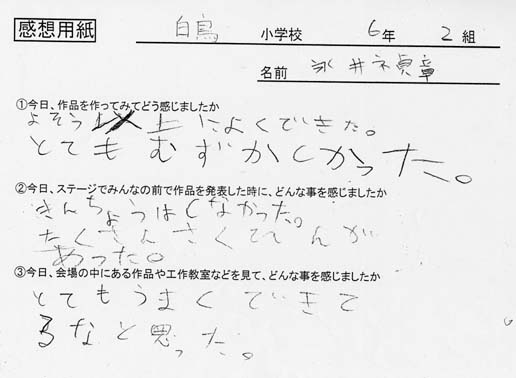 感想用紙
白鳥 小学校 6年 2組
名前 永井禎章
①今日、作品を作ってみてどう感じましたか
よそう以上によくできた。
とてもむずかしかった。
②今日、ステージでみんなの前で作品を発表した時に、どんな事を感じましたか
きんちょうはしなかった。
たくさんさくひんが
あった。
③今日、会場の中にある作品や工作教室などを見て、どんな事を感じましたか
とてもうまくできて
るなと思った。